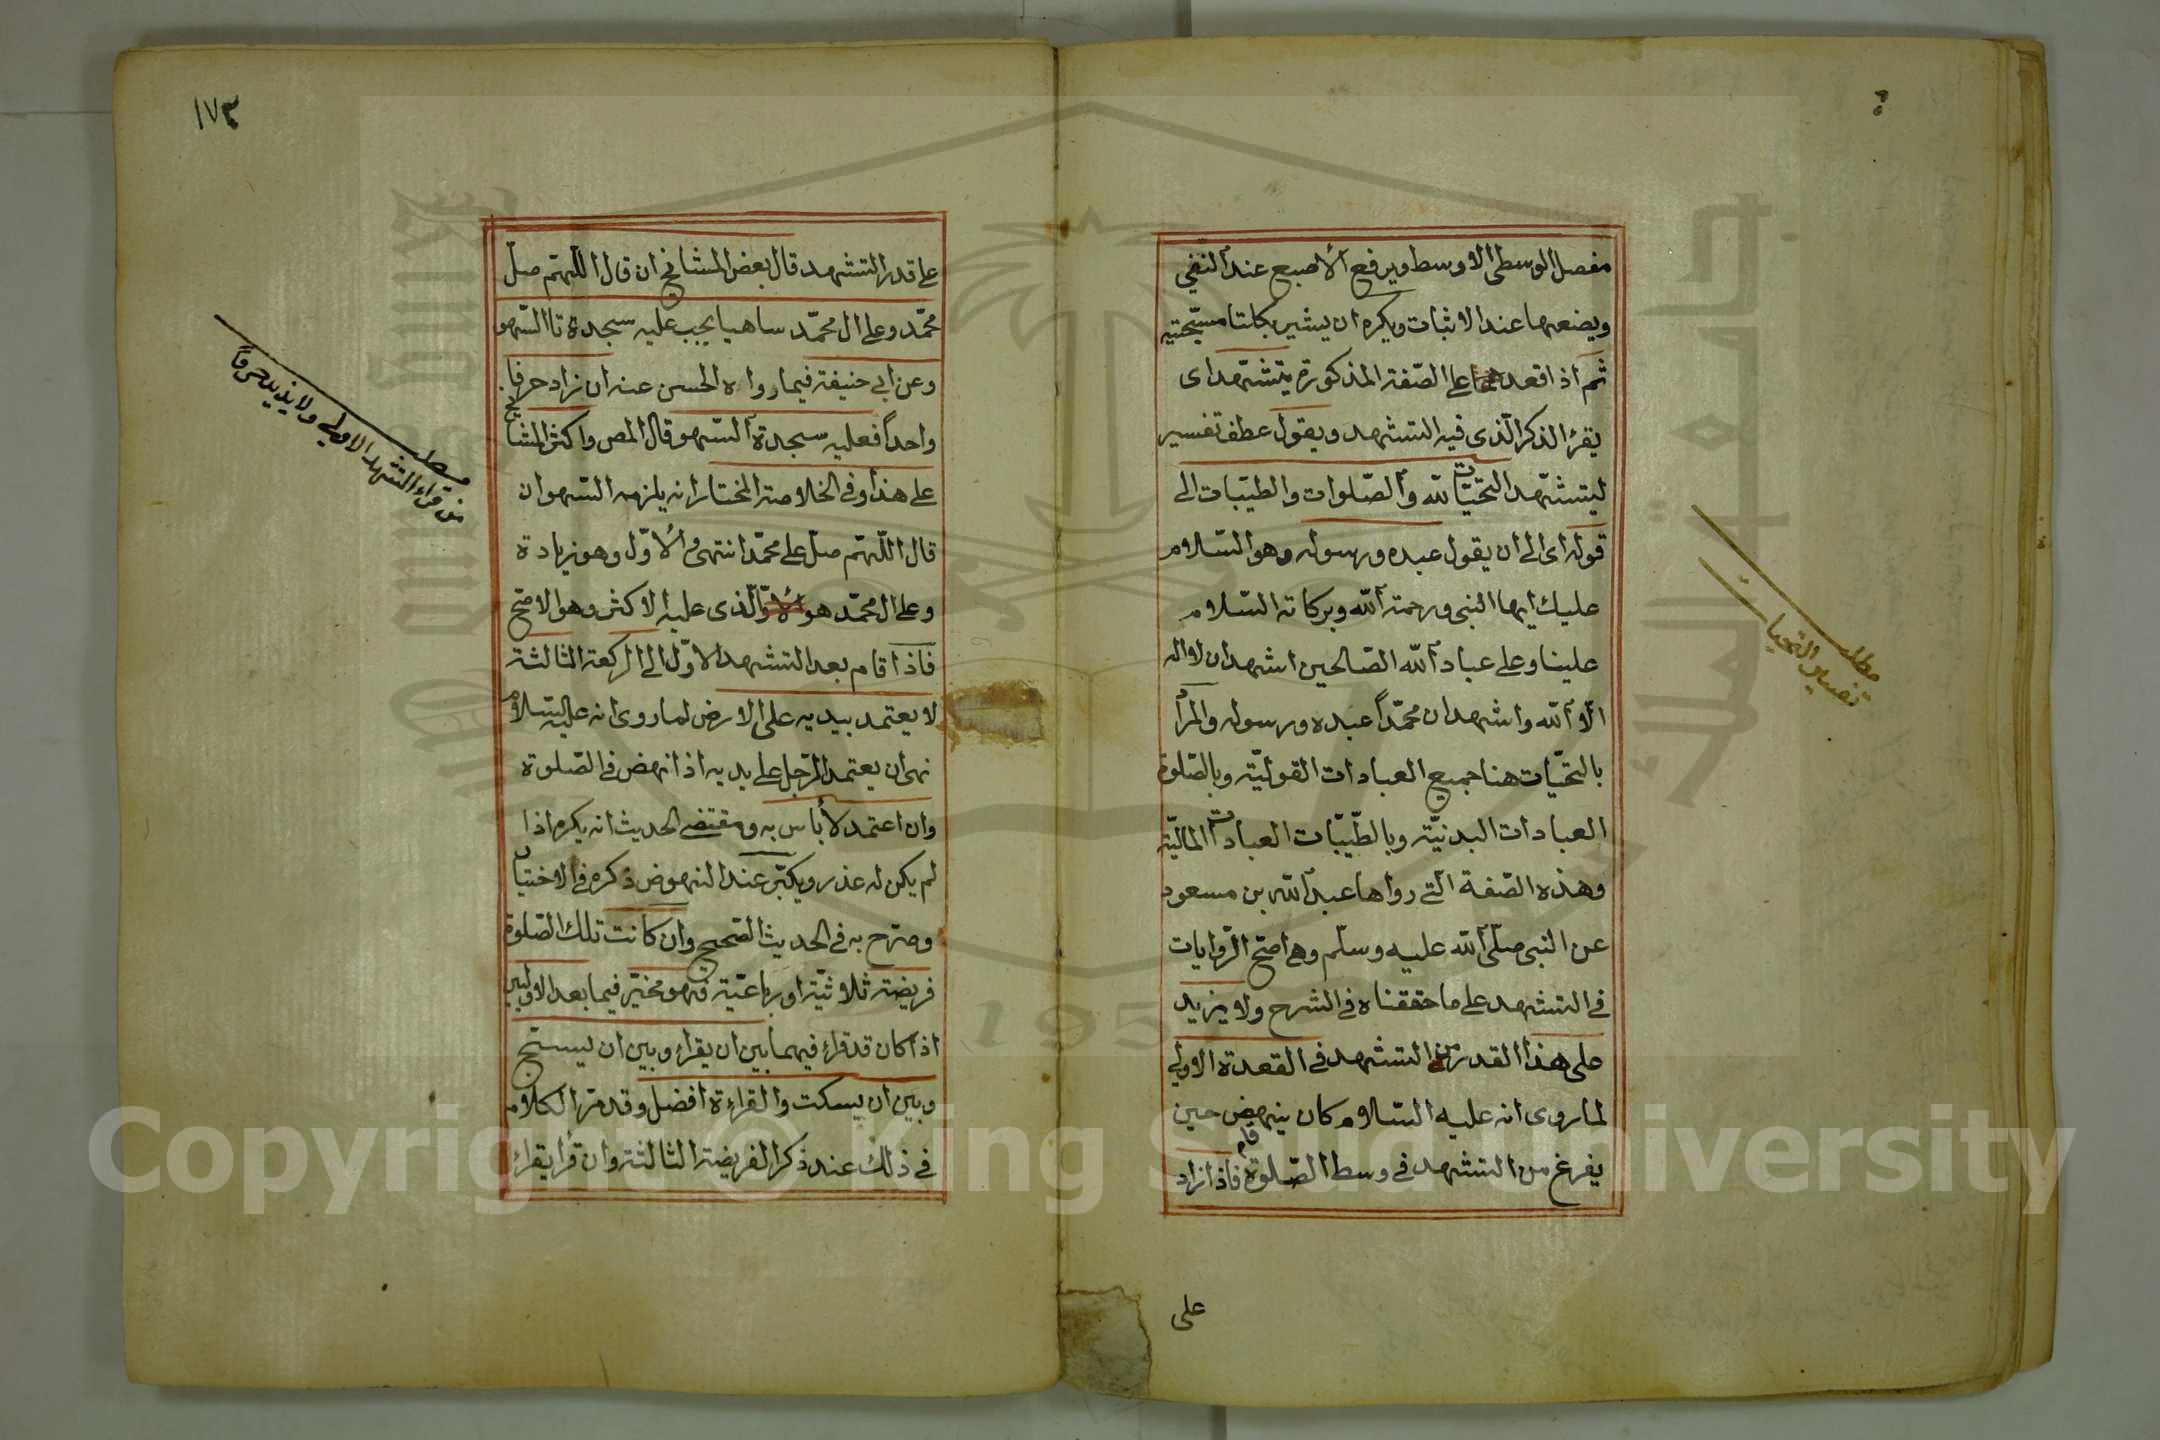 مفصل الوسطى الاوسط ويرفع الاصبع عند النفى
ويضعها عند الاثبات ويكره ان يشير بكلتا مسبّحتيه
ثم اذا قعد على الصّفة المذكورة يتشهّد اى
يقرأ الذكر الّذى فيه التشهد ويقول عطف تفسير
ليتشهّد التحيّات لله والصّلوات والطيّبات الى
قوله اى الى ان يقول عبده ورسوله وهو السّلام
عليك ايها النبى ورحمة الله وبركاته السّلام
علينا وعلى عباد الله الصّالحين اشهد ان لا اله
الّا الله واشهد ان محمّداً عبده ورسوله والمراد
بالتحيّات هنا جميع العبادات القوليّة وبالصّلوة
العبادات البدنيّة وبالطّيّبات العبادات الماليّة
وهذه الصّفة الّتى رواها عبد الله بن مسعود
عن النبى صلّى الله عليه وسلّم وهى اصحّ الرّوايات
فى التشهد على ما حققناه فى الشرح ولا يزيد
على هذا القدر من التشهد فى القعدة الاولى
لما روى انه عليه السّلام كان ينهض حين
يفرغ من التشهد فى وسط الصّلوة فاذا زاد
قام
على
مطلب
تفسير التحيات
١٧٣
على قدر التشهد قال بعض المشائخ ان قال اللّهمّ صلّ
محمّد وعلى ال محمّد ساهيا يجب عليه سجدتا السّهو
وعن ابى حنيفة فيما رواه الحسن عنه ان زاد حرفا
واحداً فعليه سجدة السّهو قال المص واكثر المشائخ
على هذا وفى الخلاصة المختار انه يلزمه السّهو ان
قال اللّهمّ صلّ على محمّد انتهى والاوّل وهو زيادة
وعلى ال محمّد هو الّذى عليه الاكثر وهو الاصحّ
فاذا قام بعد التشهد الاوّل الى الركعة الثالثة
لا يعتمد بيديه على الارض لما روى انه عليه السّلام
نهى ان يعتمد الرّجل على يديه اذا نهض فى الصّلوة
وان اعتمد لا بأس به ومقتضى الحديث انه يكره اذا
لم يكن له عذر ويكبّر عند النهوض ذكره فى الاختيار
وصرّح به فى الحديث الصّحيح وان كانت تلك الصّلوة
فريضة ثلاثيّة او رباعيّة فهو مخيّر فيما بعد الاوليين
اذا كان قد قراء فيهما بين ان يقراء وبين ان يسبّح
وبين ان يسكت والقراءة افضل وقد مرّ الكلام
فى ذلك عند ذكر الفريضة الثالثة وان قرأ يقراء
مطلب
من قراء التشهد الاولى ولا يزيد حرفاً
Copyright © King Saud University
195